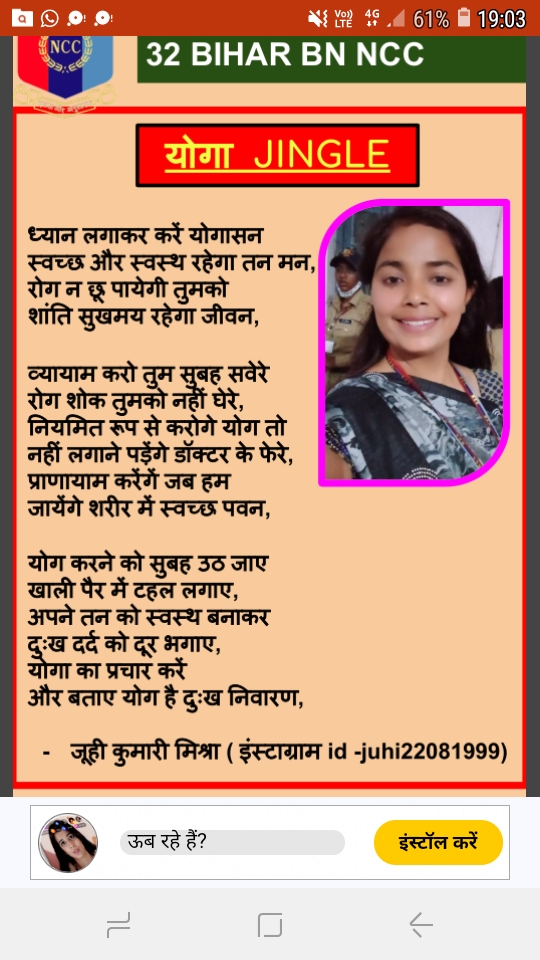 Vo))
LTE
4G
61%
19:03
NCC
32 BIHAR BN NCC
योगा JINGLE
ध्यान लगाकर करें योगासन
स्वच्छ और स्वस्थ रहेगा तन मन,
रोग न छू पायेगी तुमको
शांति सुखमय रहेगा जीवन,
व्यायाम करो तुम सुबह सवेरे
रोग शोक तुमको नहीं घेरे,
नियमित रूप से करोगे योग तो
नहीं लगाने पड़ेंगे डॉक्टर के फेरे,
प्राणायाम करेंगें जब हम
जायेंगे शरीर में स्वच्छ पवन,
योग करने को सुबह उठ जाए
खाली पैर में टहल लगाए,
अपने तन को स्वस्थ बनाकर
दुःख दर्द को दूर भगाए,
योगा का प्रचार करें
और बताए योग है दुःख निवारण,
- जूही कुमारी मिश्रा ( इंस्टाग्राम id -juhi22081999)
ऊब रहे हैं?
इंस्टॉल करें